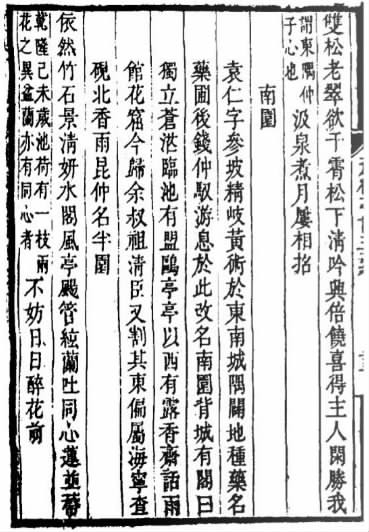 雙松老翠欲干霄松下清吟興倍饒喜得主人閑勝我
謂東隅仲
子心也
汲泉煮月屢相招
南園
袁仁字參坡精岐黃術於東南城隅闢地種藥名
藥圃後錢仲馭游息於此改名南園背城有閣曰
獨立蒼茫臨池有盟鷗亭亭以西有露香齋話雨
館花窟今歸余叔祖清臣又割其東偏屬海寧查
硯北香雨昆仲名半園
依然竹石景清妍水閣風亭颺管絃蘭吐同心蓮並蔕
乾隆己未歲池荷有一枝兩
花之異盆蘭亦有同心者
不妨日日醉花前